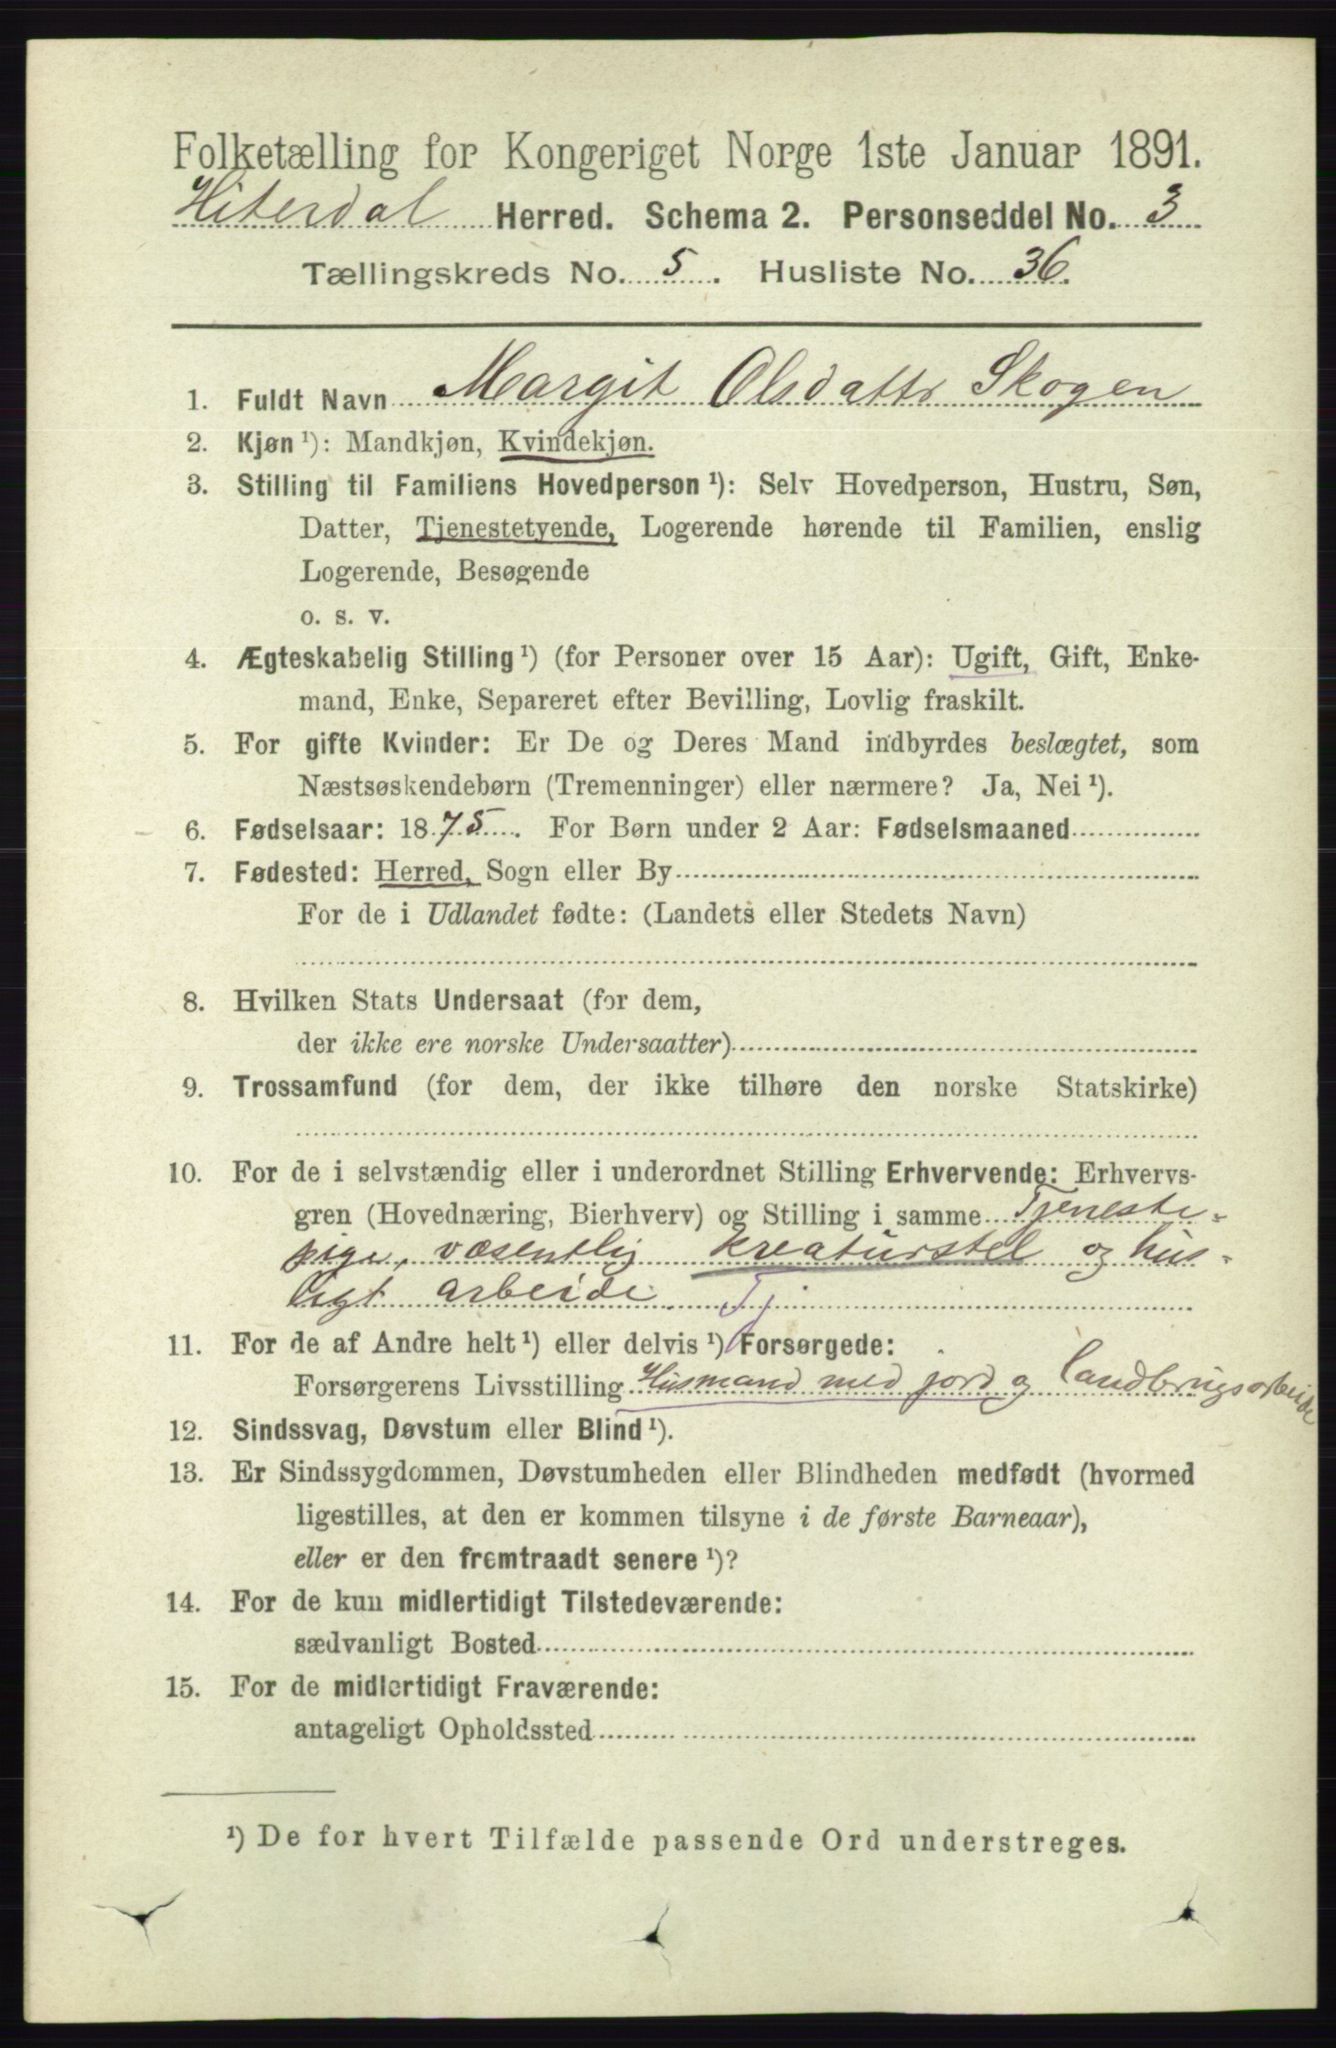 Folketælling for Kongeriget Norge 1ste Januar 1891.
Hiterdal Herred. Schema 2. Personseddel No. 3
Tællingskreds No. 5. Husliste No. 36.
1. Fuldt Navn Margit Olsdattr Skogen
2. Kjøn ¹): Mandkjøn, Kvindekjøn.
3. Stilling til Familiens Hovedperson ¹): Selv Hovedperson, Hustru, Søn,
Datter, Tjenestetyende, Logerende hørende til Familien, enslig
Logerende, Besøgende
o. s. v.
4. Ægteskabelig Stilling ¹) (for Personer over 15 Aar): Ugift, Gift, Enke-
mand, Enke, Separeret efter Bevilling, Lovlig fraskilt.
5. For gifte Kvinder: Er De og Deres Mand indbyrdes beslægtet, som
Næstsøskendebørn (Tremenninger) eller nærmere? Ja, Nei ¹).
6. Fødselsaar: 1875. For Børn under 2 Aar: Fødselsmaaned
7. Fødested: Herred, Sogn eller By
For de i Udlandet fødte: (Landets eller Stedets Navn)
8. Hvilken Stats Undersaat (for dem,
der ikke ere norske Undersaatter)
9. Trossamfund (for dem, der ikke tilhøre den norske Statskirke)
10. For de i selvstændig eller i underordnet Stilling Erhvervende: Erhvervs-
gren (Hovednæring, Bierhverv) og Stilling i samme Tjeneste-
pige, væsentlig kreaturstel og hus-
ligt arbeide. Tj
11. For de af Andre helt ¹) eller delvis ¹) Forsørgede:
Forsørgerens Livsstilling Husmand med jord og landbrugsarbeide
12. Sindssvag, Døvstum eller Blind ¹).
13. Er Sindssygdommen, Døvstumheden eller Blindheden medfødt (hvormed
ligestilles, at den er kommen tilsyne i de første Barneaar),
eller er den fremtraadt senere ¹)?
14. For de kun midlertidigt Tilstedeværende:
sædvanligt Bosted
15. For de midlertidigt Fraværende:
antageligt Opholdssted
¹) De for hvert Tilfælde passende Ord understreges.